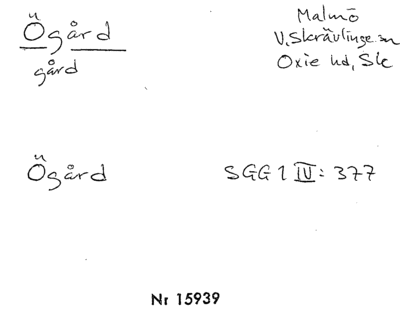 Ögård
gård
Malmö
V. Skrävlinge sn
Oxie hd, Sk
Ögård
SGG 1 IV: 377
Nr 15939